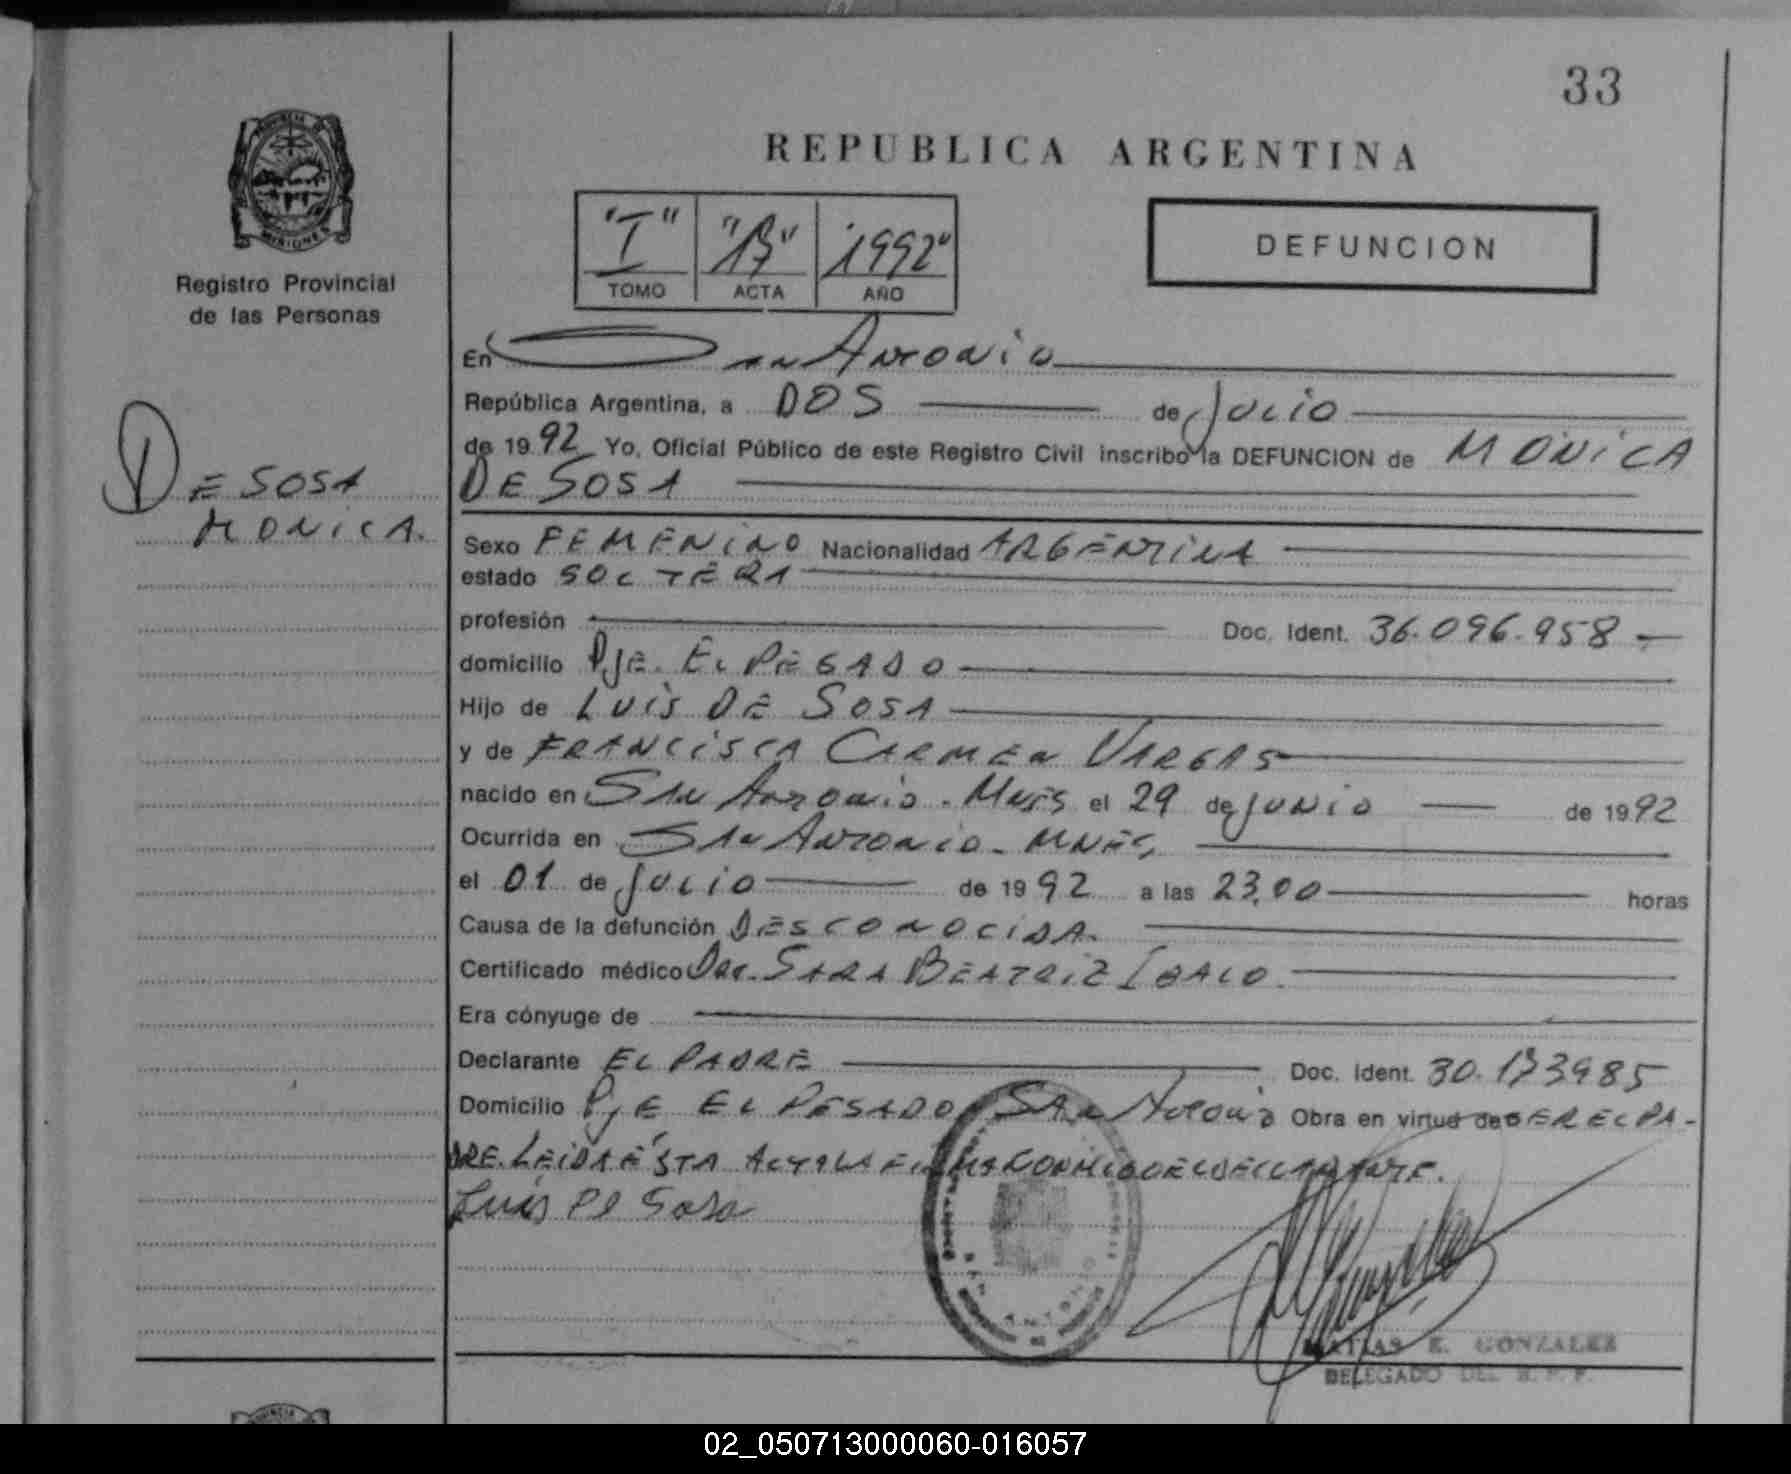 33
REPUBLICA ARGENTINA
PROVINCIA DE
MISIONES
Registro Provincial
de las Personas
"I" TOMO
ACTA
"1992" AÑO
DEFUNCION
DE SOSA
MONICA.
En San Antonio
República Argentina, a DOS de Julio
de 1992 Yo, Oficial Público de este Registro Civil inscribo la DEFUNCION de MONICA
DE SOSA
Sexo FEMENINO Nacionalidad ARGENTINA
estado SOLTERA
profesión Doc. Ident. 36.096.958
domicilio PJE. EL PESADO
Hijo de LUIS DE SOSA
y de FRANCISCA CARMEN VARGAS
nacido en SAN ANTONIO - MNES el 29 de JUNIO de 1992
Ocurrida en SAN ANTONIO - MNES,
el 01 de JULIO de 1992 a las 23,00 horas
Causa de la defunción DESCONOCIDA.
Certificado médico Dra. SARA BEATRIZ
Era cónyuge de
Declarante EL PADRE Doc. Ident. 30.173985
Domicilio PJE EL PESADO SAN ANTONIO Obra en virtud de SER EL PA-
DRE. LEIDA ÉSTA ACTA LA FIRMA CONMIGO EL DECLARANTE.
Luis De Sosa
MATIAS E. GONZALEZ
DELEGADO DEL R. P. P.
02_050713000060-016057